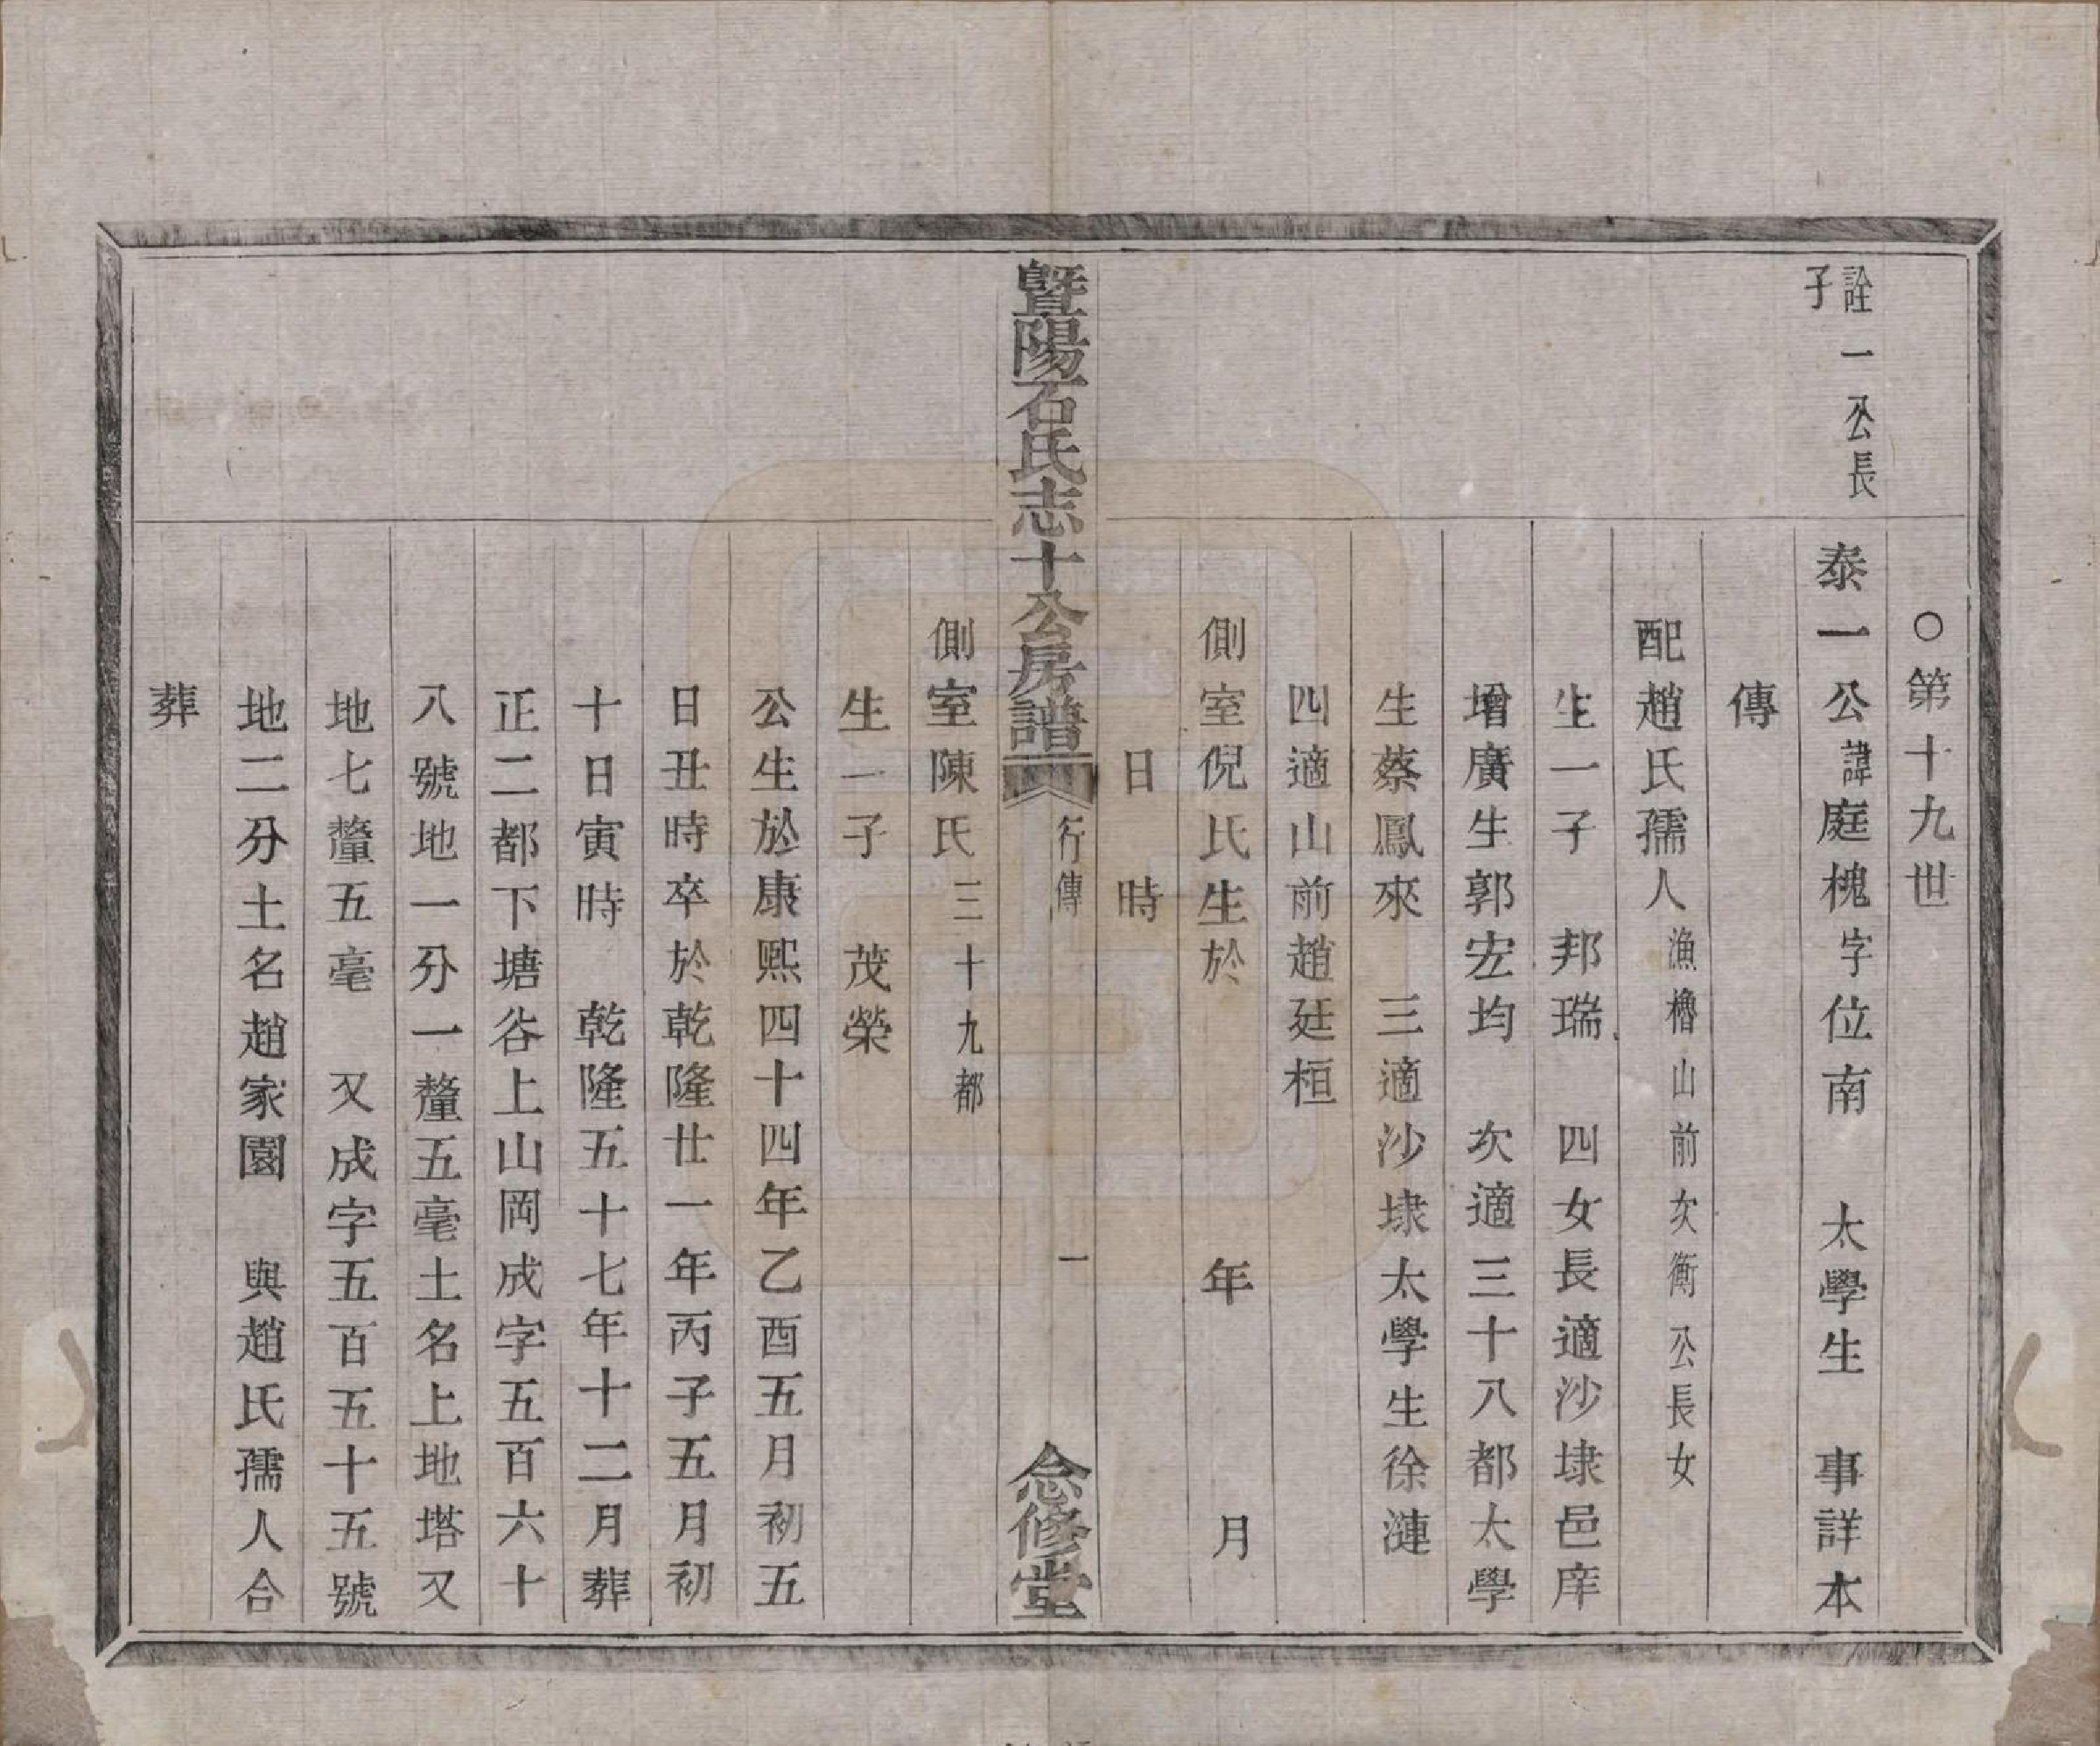 ○第十九世
詮一公長
子
泰一公諱庭槐字位南　太學生　事詳本
傳
配趙氏孺人漁櫓山前次衡公長女
生一子　邦瑞　四女長適沙埭邑庠
增廣生郭宏均　次適三十八都太學
生蔡鳳來　三適沙埭太學生徐漣
四適山前趙廷桓
側室倪氏生於　年　月
日　時
暨陽石氏志十公房譜　行傳　一　念修堂
側室陳氏三十九都
生一子　茂榮
公生於康熙四十四年乙酉五月初五
日丑時卒於乾隆廿一年丙子五月初
十日寅時　乾隆五十七年十二月葬
正二都下塘谷上山岡成字五百六十
八號地一分一釐五毫土名上地塔又
地七釐五毫　又成字五百五十五號
地二分土名趙家園　與趙氏孺人合
葬